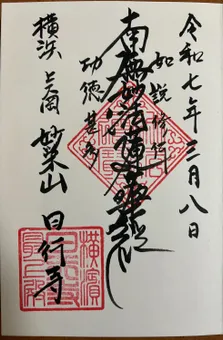 令和七年三月八日
如説修行
南無妙法蓮華経
功徳甚多
横浜
妙栄山 日行寺